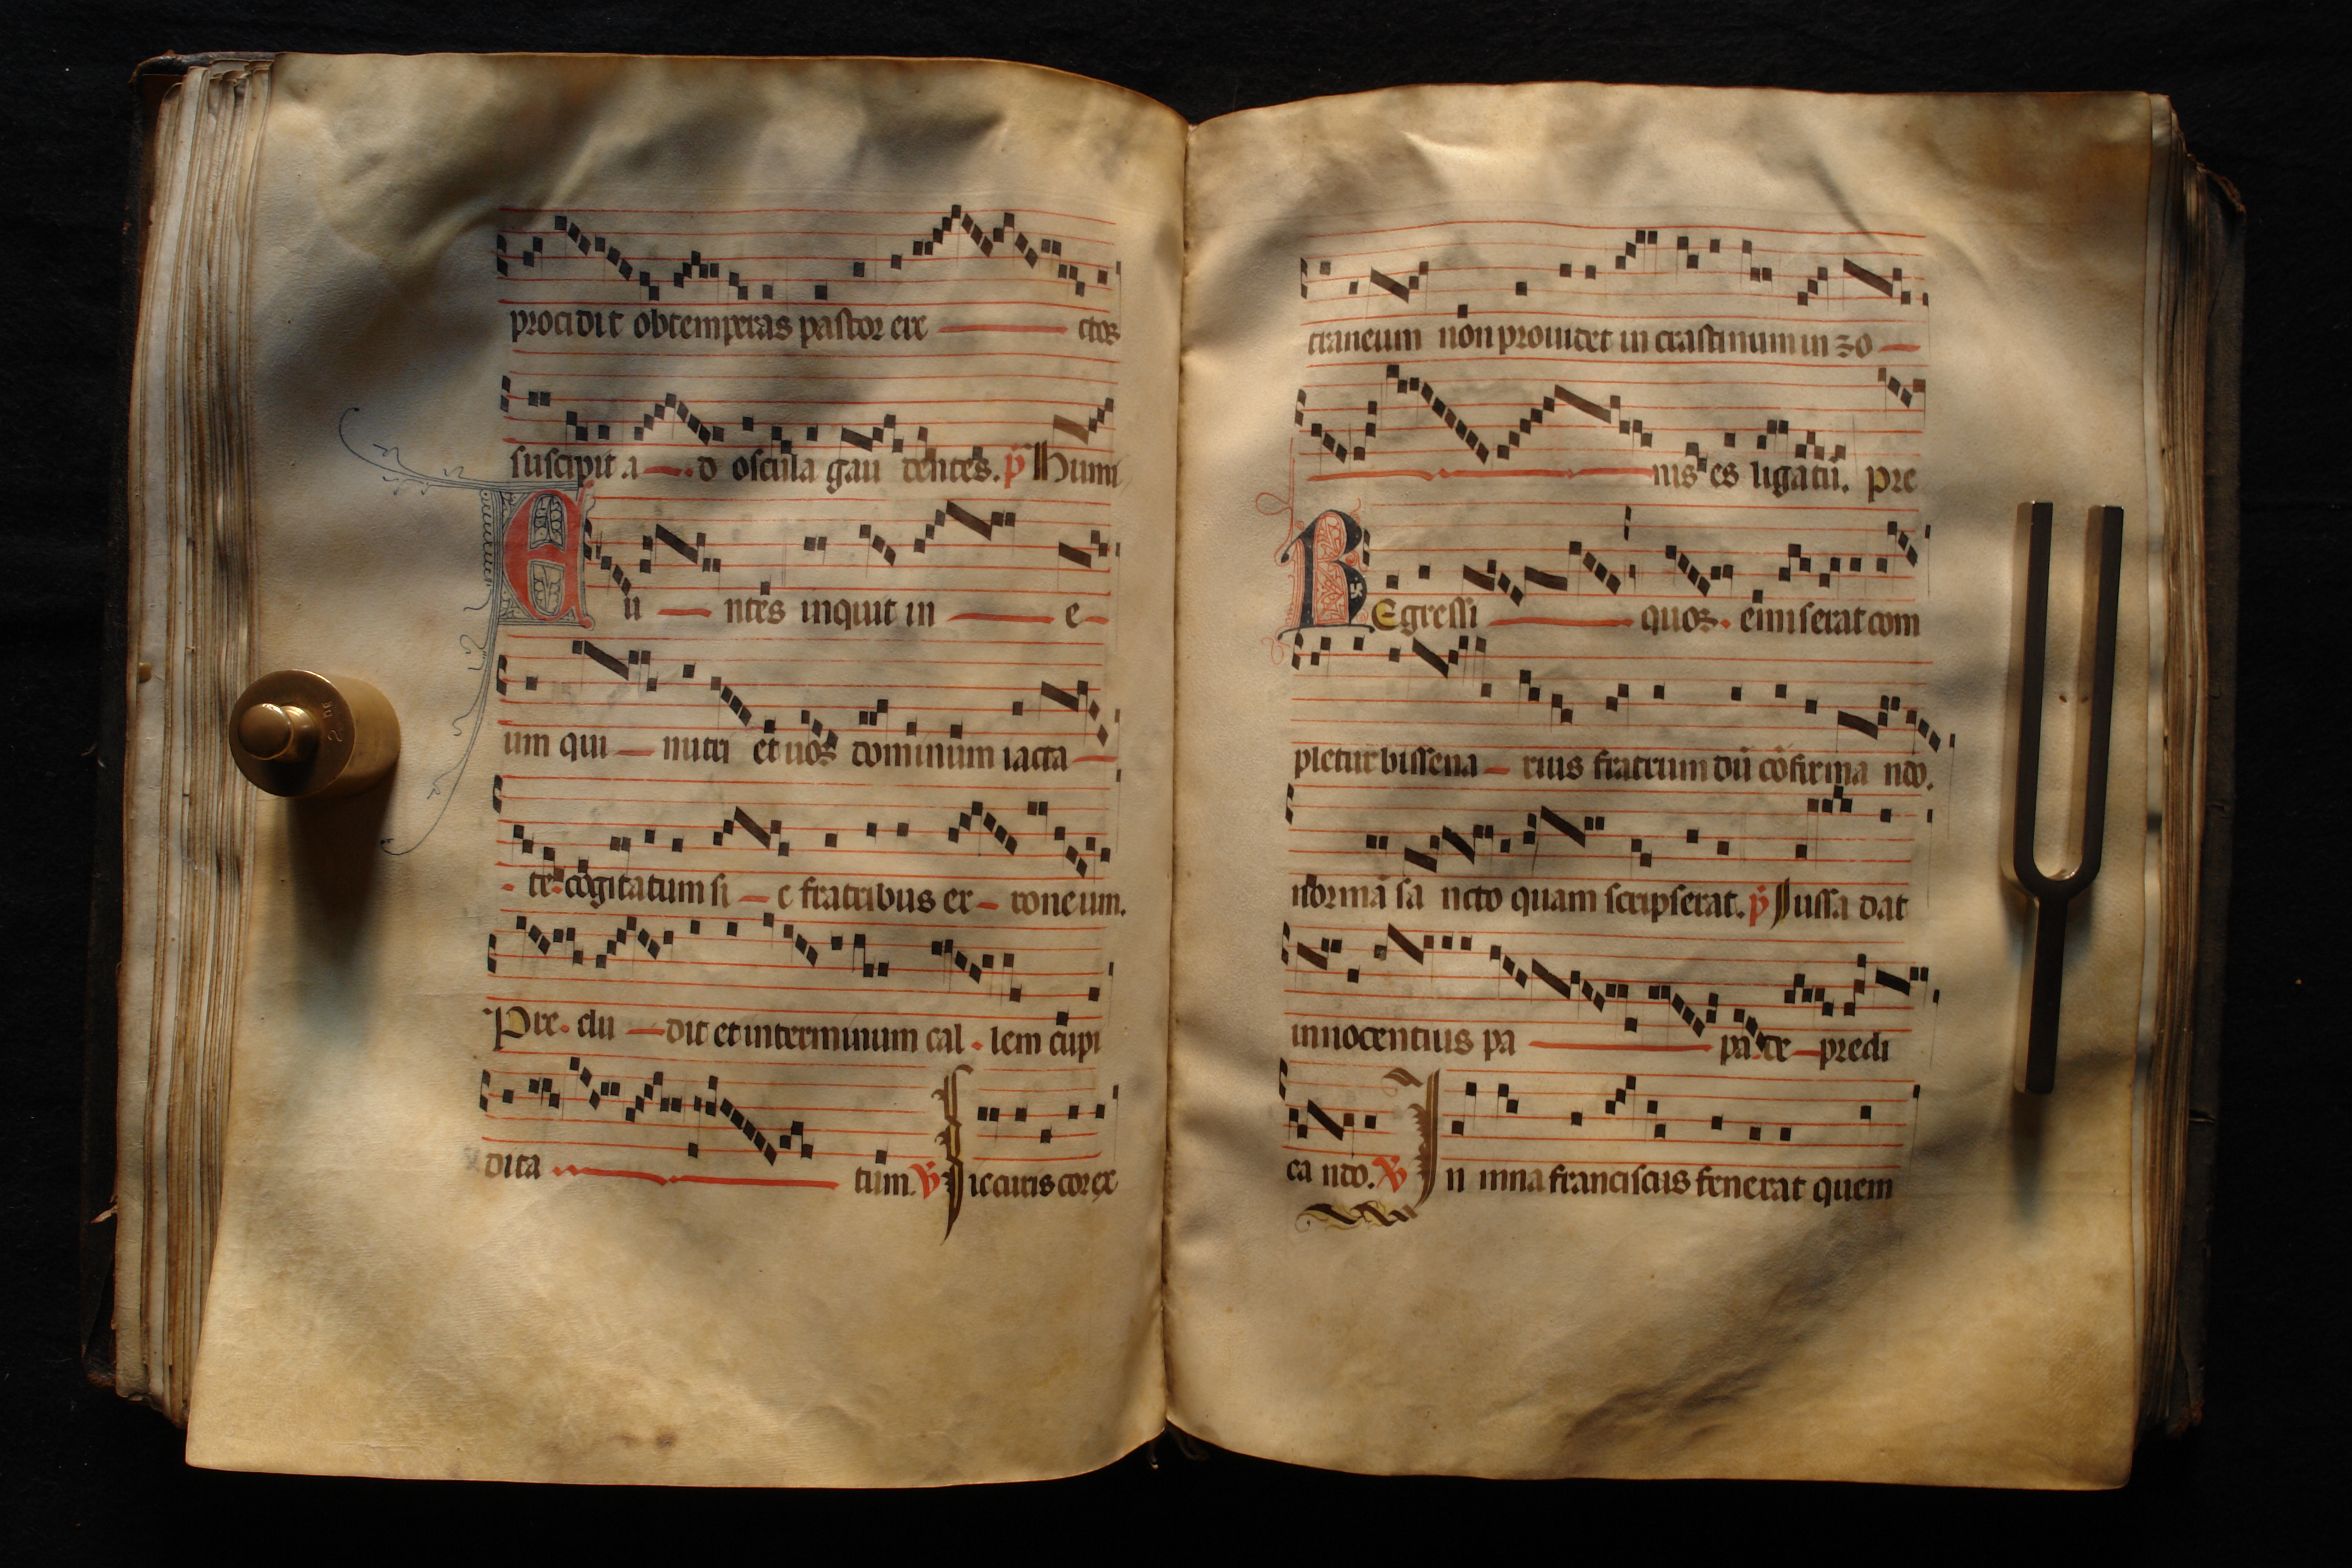 procidit obtemperas pastor eie ctos
suscipit a d oscula gau dentes. p̄ Humi
Eu ntes inquit in e
um qui nutri et uos dominum iacta
te cogitatum si c fratribus er roneum.
Pre clu dit et interminium cal lem cupi
dita tum. V Sic curis cor ex
traneum non prouidet in crastinum in zo
nis es ligatū. Pre
REgressi quos emiserat com
pletur bissena rius fratrum dū cōfirma ndo.
normā sa ncto quam scripserat. p̄ Iussa dat
innocentius pa pa de predi
ca ndo. V In mna franciscus fenerat quem
2 DE